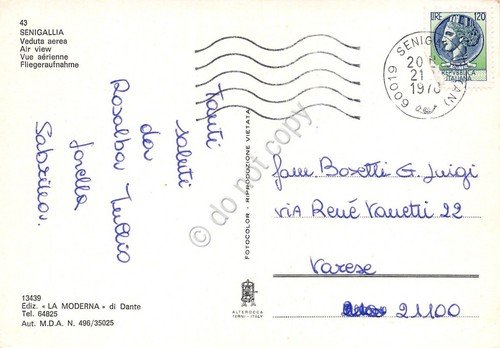 43
SENIGALLIA
Veduta aerea
Air view
Vue aérienne
Fliegeraufnahme
Tanti
saluti
da
Rosalba Tullio
Sabrina.
13439
Ediz. « LA MODERNA » di Dante
Tel. 64825
Aut. M.D.A. N. 496/35025
FOTOCOLOR - RIPRODUZIONE VIETATA
ALTEROCCA
TERNI - ITALY
LIRE 120
REPVBBLICA
ITALIANA
60019 SENIGALLIA (AN)
21
1970
Fam Bosetti G. Luigi
VIA René Vanetti 22
Varese
21100
do not copy